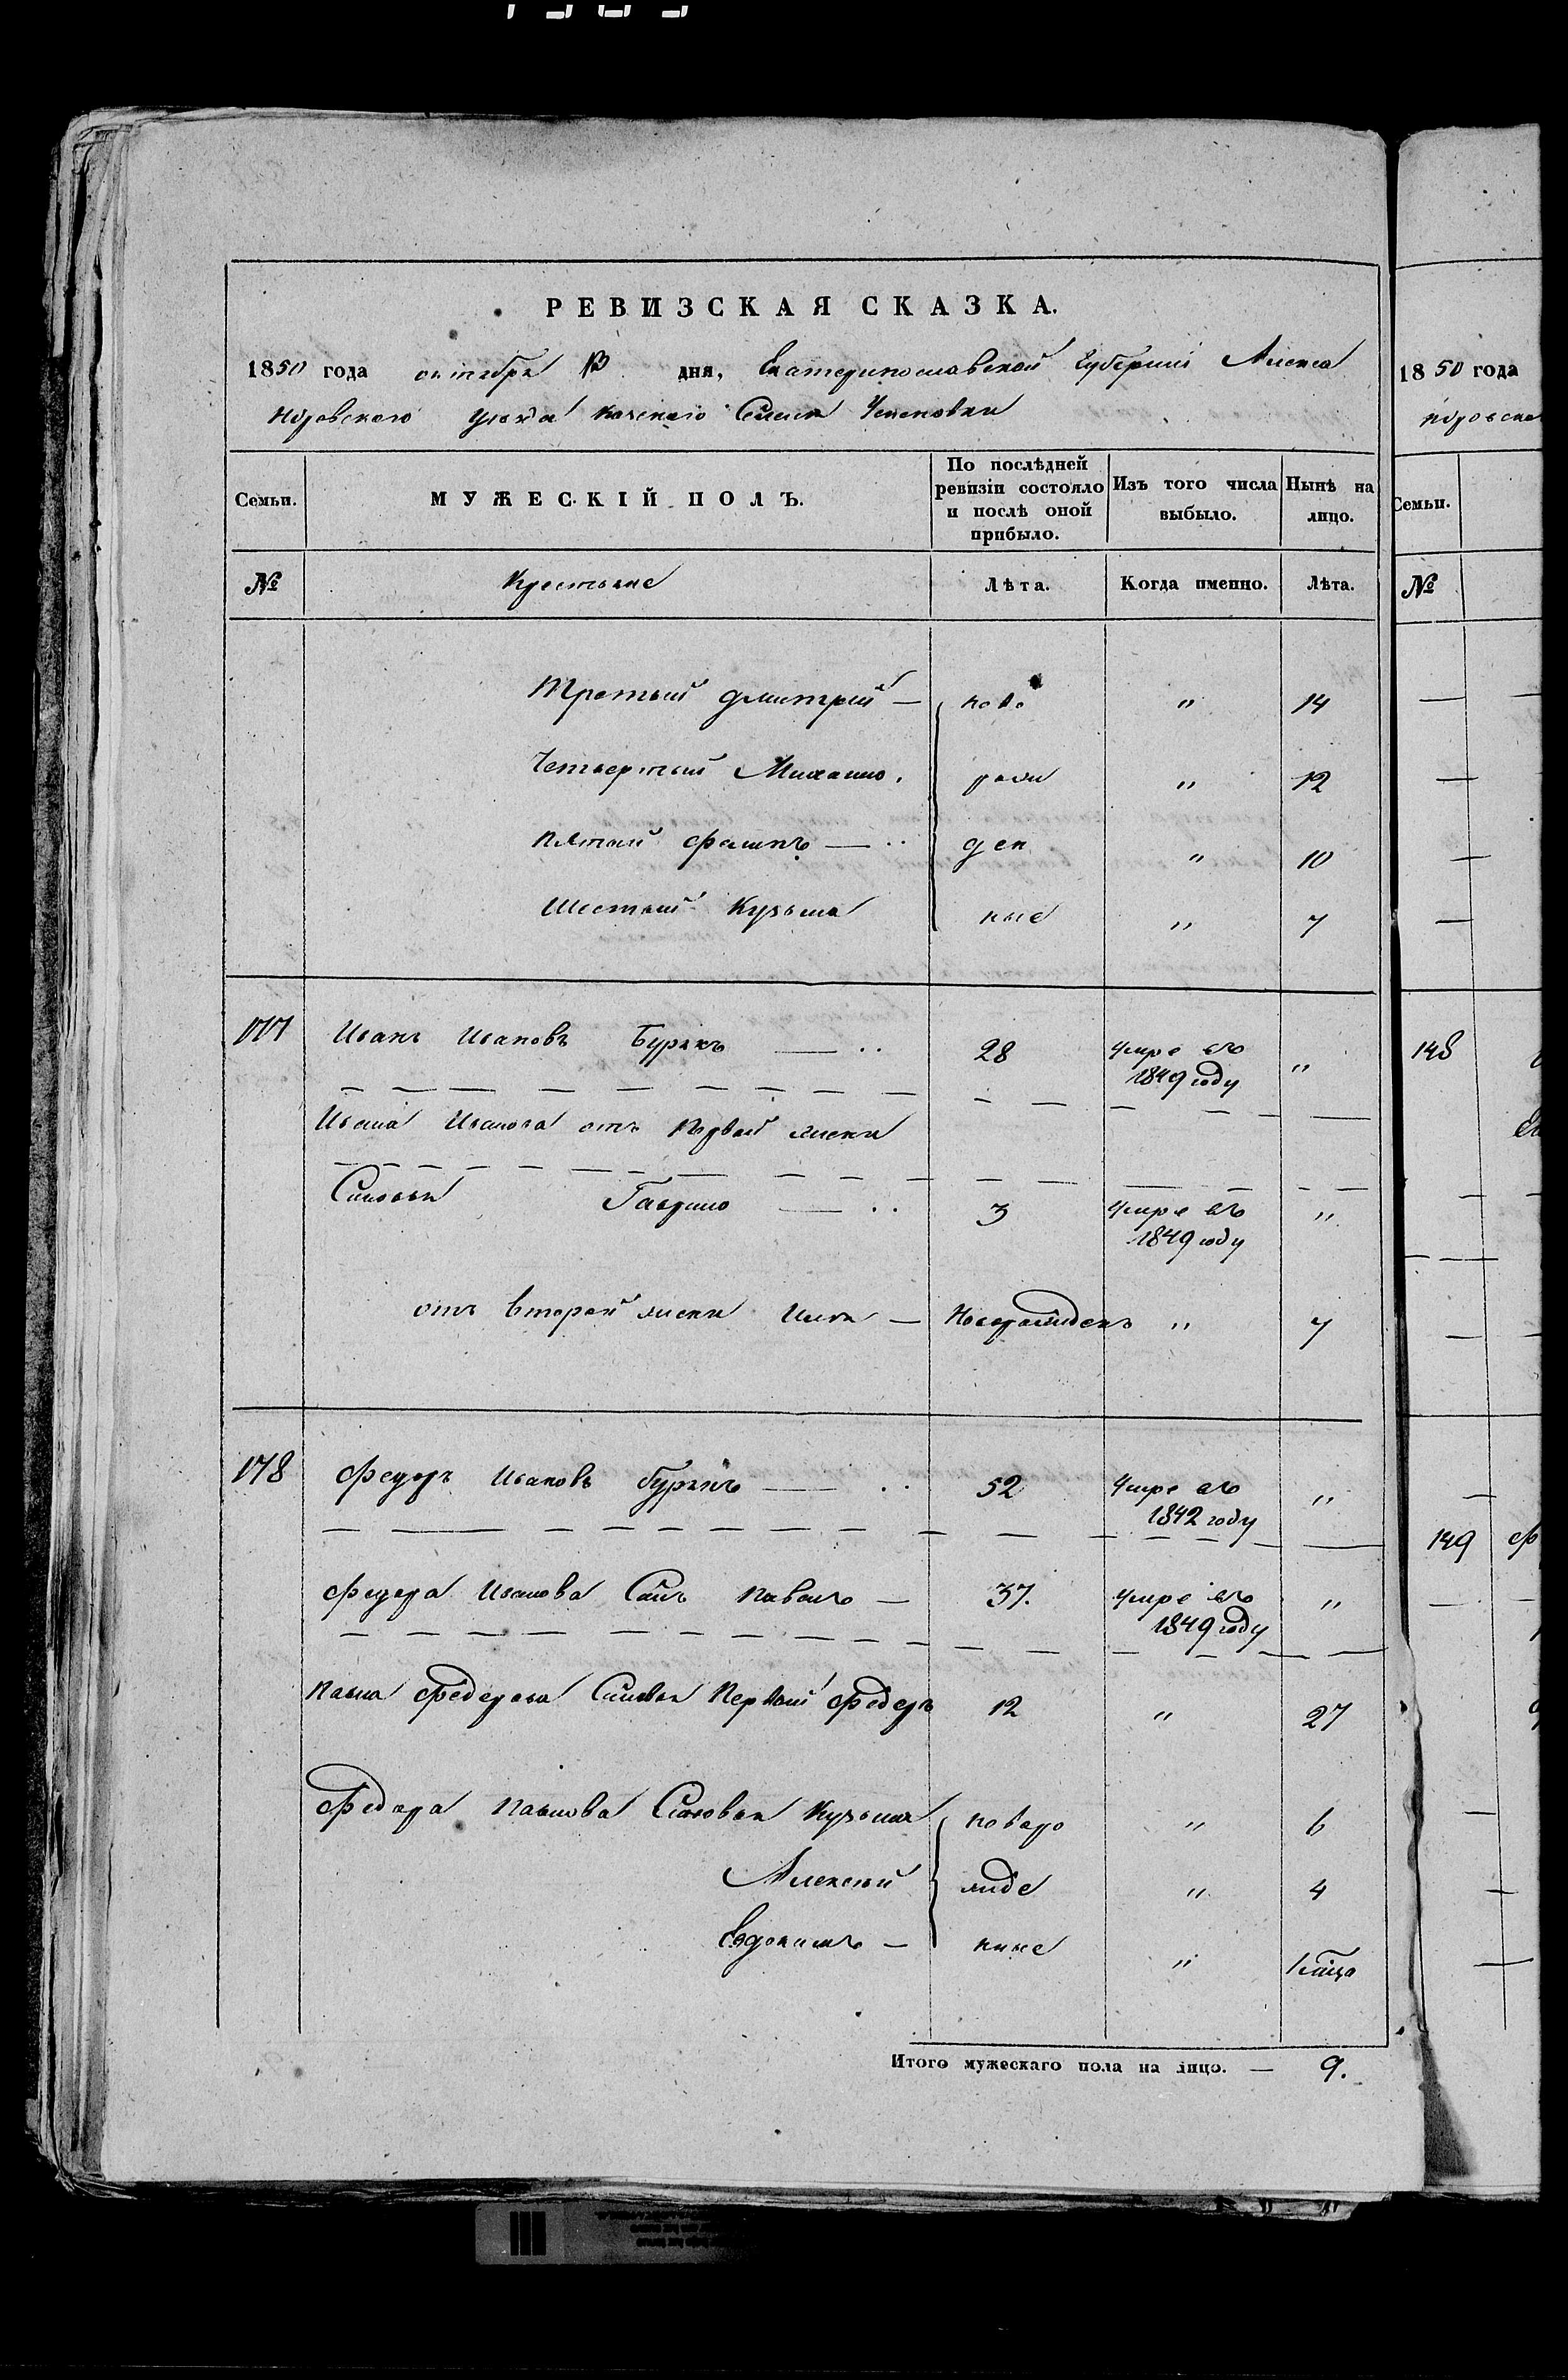 РЕВИЗСКАЯ СКАЗКА.
1850 года октября 13 дня, Екатеринославской Губерніи Алекса
ндровского уезда казенного Селения
Семьи. МУЖЕСКІЙ ПОЛЪ. По послѣдней ревизіи состояло и послѣ оной прибыло. Изъ того числа выбыло. Нынѣ на лицо.
№ Крестьяне Лѣта. Когда именно. Лѣта.
Третий Дмитрий — ново " 14
Четвертый Михаило. рож " 12
Пятый Филипъ — ден " 10
Шестый Кузьма ные " 7
177 Иванъ Ивановъ Бурякъ — 28 умре въ 1849 году "
Ивана Иванова отъ Первой жены
Сыновья Гаврило — 3 умре въ 1849 году "
отъ второй жены Илья — Новорожденъ " 7
178 Федоръ Ивановъ Бурякъ — 52 Умре въ 1842 году "
Федора Иванова Сынъ Павелъ — 37. умре въ 1849 году "
Павла Федорова Сыновья Первый Федоръ 12 " 27
Федора Павлова Сыновья Кузьма новоро " 6
Алексей жде " 4
Евдокимъ — ные "
Итого мужескаго пола на лицо. — 9.
1850 года
Семьи.
№
148
149